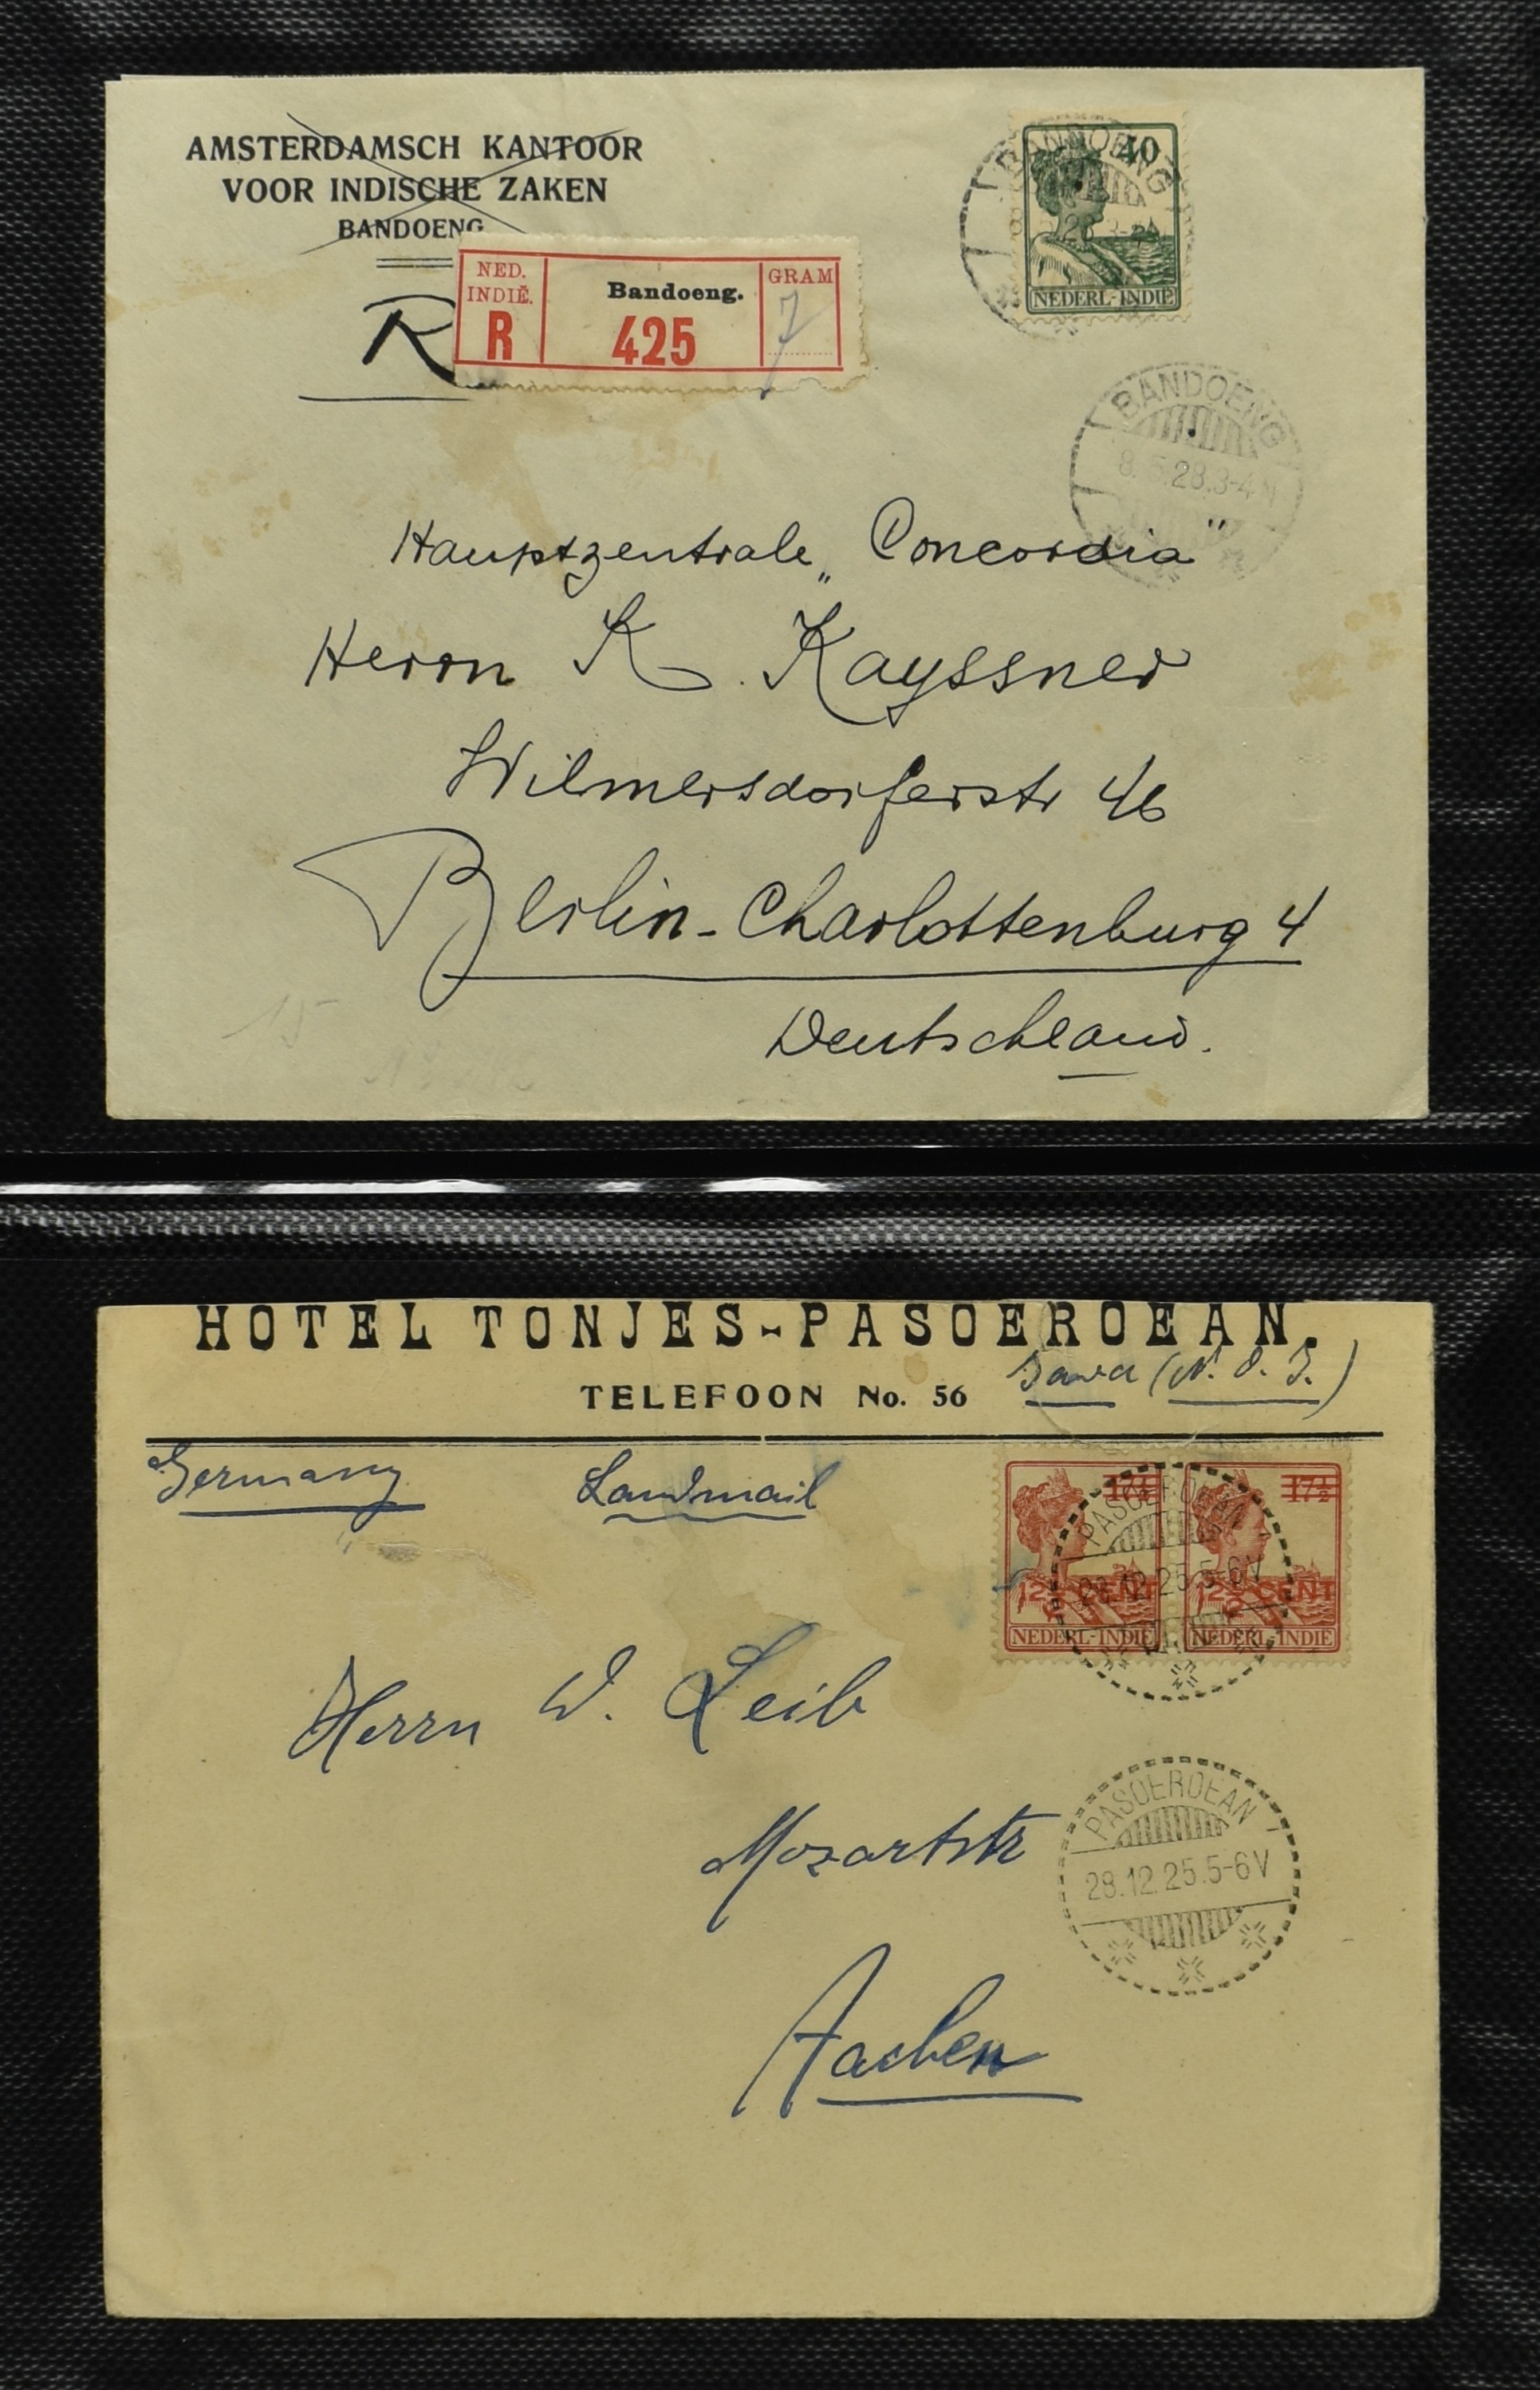 AMSTERDAMSCH KANTOOR
VOOR INDISCHE ZAKEN
BANDOENG
R
NED.
INDIË.
R
Bandoeng.
425
GRAM
7
BANDOENG
40
NEDERL-INDIË
BANDOENG
28.3-4N
Hauptzentrale „Concordia"
Herrn K. Kayssner
Wilmersdorferstr 46
Berlin-Charlottenburg 4
Deutschland.
15
HOTEL TONJES-PASOEROEAN.
TELEFOON No. 56
Java (N. O. I.)
Germany
Landmail
17½
17½
PASOEROEAN
28.12.25.5-6V
12½ CENT
12½ CENT
NEDERL-INDIË
NEDERL-INDIË
Herrn W. Leib
Mozartstr
Aachen
PASOEROEAN
28.12.25.5-6V